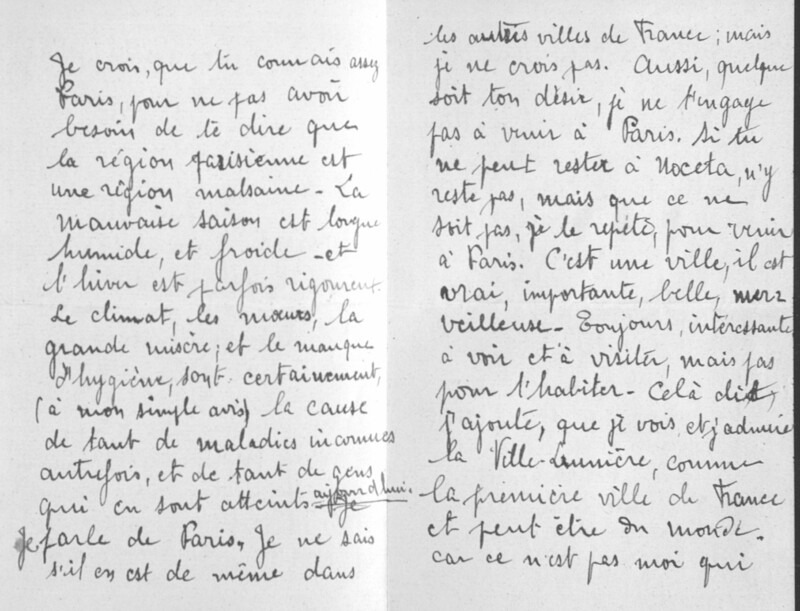 Je crois, que tu connais assez
Paris, pour ne pas avoir
besoin de te dire que
la région parisienne est
une région malsaine - La
mauvaise saison est longue
humide, et froide - et
l'hiver est parfois rigoureux.
Le climat, les mœurs, la
grande misère; et le manque
d'hygiène, sont certainement,
(à mon simple avis) la cause
de tant de maladies inconnues
autrefois, et de tant de gens
qui en sont atteints aujourd'hui.
Je parle de Paris. Je ne sais
s'il en est de même dans
les autres villes de France; mais
je ne crois pas. Aussi, quelque
soit ton désir, je ne t'engage
pas à venir à Paris. Si tu
ne peut rester à Noceta, n'y
reste pas, mais que ce ne
soit pas, je le repète, pour venir
à Paris. C'est une ville, il est
vrai, importante, belle, mer-
veilleuse - Toujours, intéressante
à voir et à visiter, mais pas
pour l'habiter - Celà dit,
j'ajoute, que je vois et j'admire
la Ville-Lumière, comme
la première ville de France
et peut être du monde -
car ce n'est pas moi qui